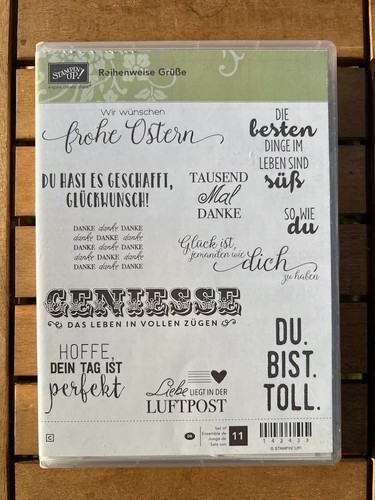 STAMPIN' UP!
Reihenweise Grüße
Wir wünschen
frohe Ostern
DIE
besten
DINGE IM
LEBEN SIND
süß
DU HAST ES GESCHAFFT,
GLÜCKWUNSCH!
TAUSEND
Mal
DANKE
SO WIE
du
DANKE danke DANKE
danke DANKE danke
DANKE danke DANKE
danke DANKE danke
DANKE danke DANKE
Glück ist,
jemanden wie dich
zu haben
GENIESSE
DAS LEBEN IN VOLLEN ZÜGEN
HOFFE,
DEIN TAG IST
perfekt
Liebe LIEGT IN DER
LUFTPOST
DU.
BIST.
TOLL.
C
DE
Set of
Ensemble de
Juego de
Satz von
11
142433
© STAMPIN' UP!